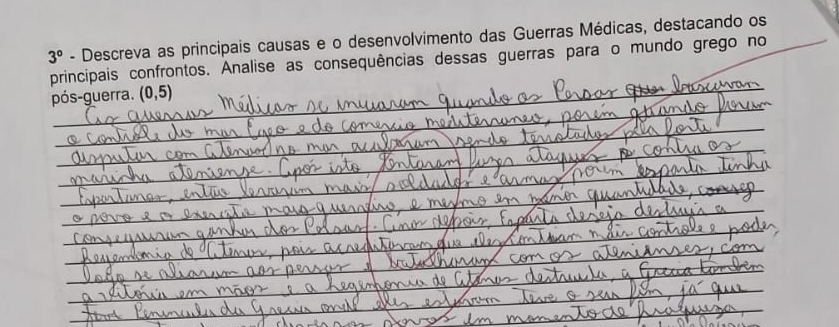 3º - Descreva as principais causas e o desenvolvimento das Guerras Médicas, destacando os
principais confrontos. Analise as consequências dessas guerras para o mundo grego no
pós-guerra. (0,5)
As guerras Médicas se iniciaram quando os Persas buscavam
o controle do mar Egeo e do comercio mediterraneo, porém quando foram
disputar com Atenas no mar acabaram sendo derrotados pela forte
marinha ateniense. Após isto, tentaram fazer ataques contra os
Espartanos, então levaram mais soldados e armas porém esparta tinha
o povo e o exercito mais guerreiro, e mesmo em menor quantidade,
conseguiram ganhar dos Persas. Anos depois, Esparta deseja destruir a
Hegemonia de Atenas, pois acreditavam que eles tinham mais controle e poder,
logo se aliaram aos persas e batalharam com os atenienses, com
a vitória em mãos e a hegemonia de Atenas destruida, a Grecia também
Peninsula da Grecia onde eles estavam teve o seu fim, já que
povos em momento de fraqueza,